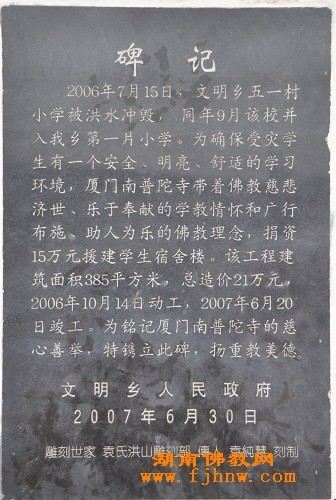 碑记
2006年7月15日，文明乡五一村
小学被洪水冲毁，同年9月该校并
入我乡第一片小学。为确保受灾学
生有一个安全、明亮、舒适的学习
环境，厦门南普陀寺带着佛教慈悲
济世、乐于奉献的学教情怀和广行
布施、助人为乐的佛教理念，捐资
15万元援建学生宿舍楼。该工程建
筑面积385平方米，总造价21万元，
2006年10月14日动工，2007年6月20
日竣工。为铭记厦门南普陀寺的慈
心善举，特镌立此碑，扬重教美德
文明乡人民政府
2007年6月30日
雕刻世家 袁氏洪山雕刻部 傳人 袁純慧 刻制
湖南佛教网
www.fjhnw.com